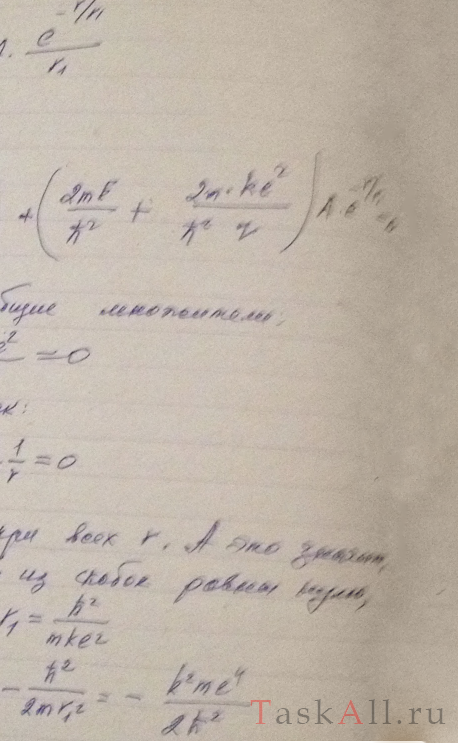 e^{-r/r₁}
r₁
+ ( 2mE/ħ² + 2m·ke²/ħ² r ) A·e^{-r/r₁} =
множители:
= 0
1/r = 0
при всех r. А это значит,
из скобок равны нулю,
r₁ = ħ²/mke²
- ħ²/2mr₁² = - k²me⁴/2ħ²
TaskAll.ru